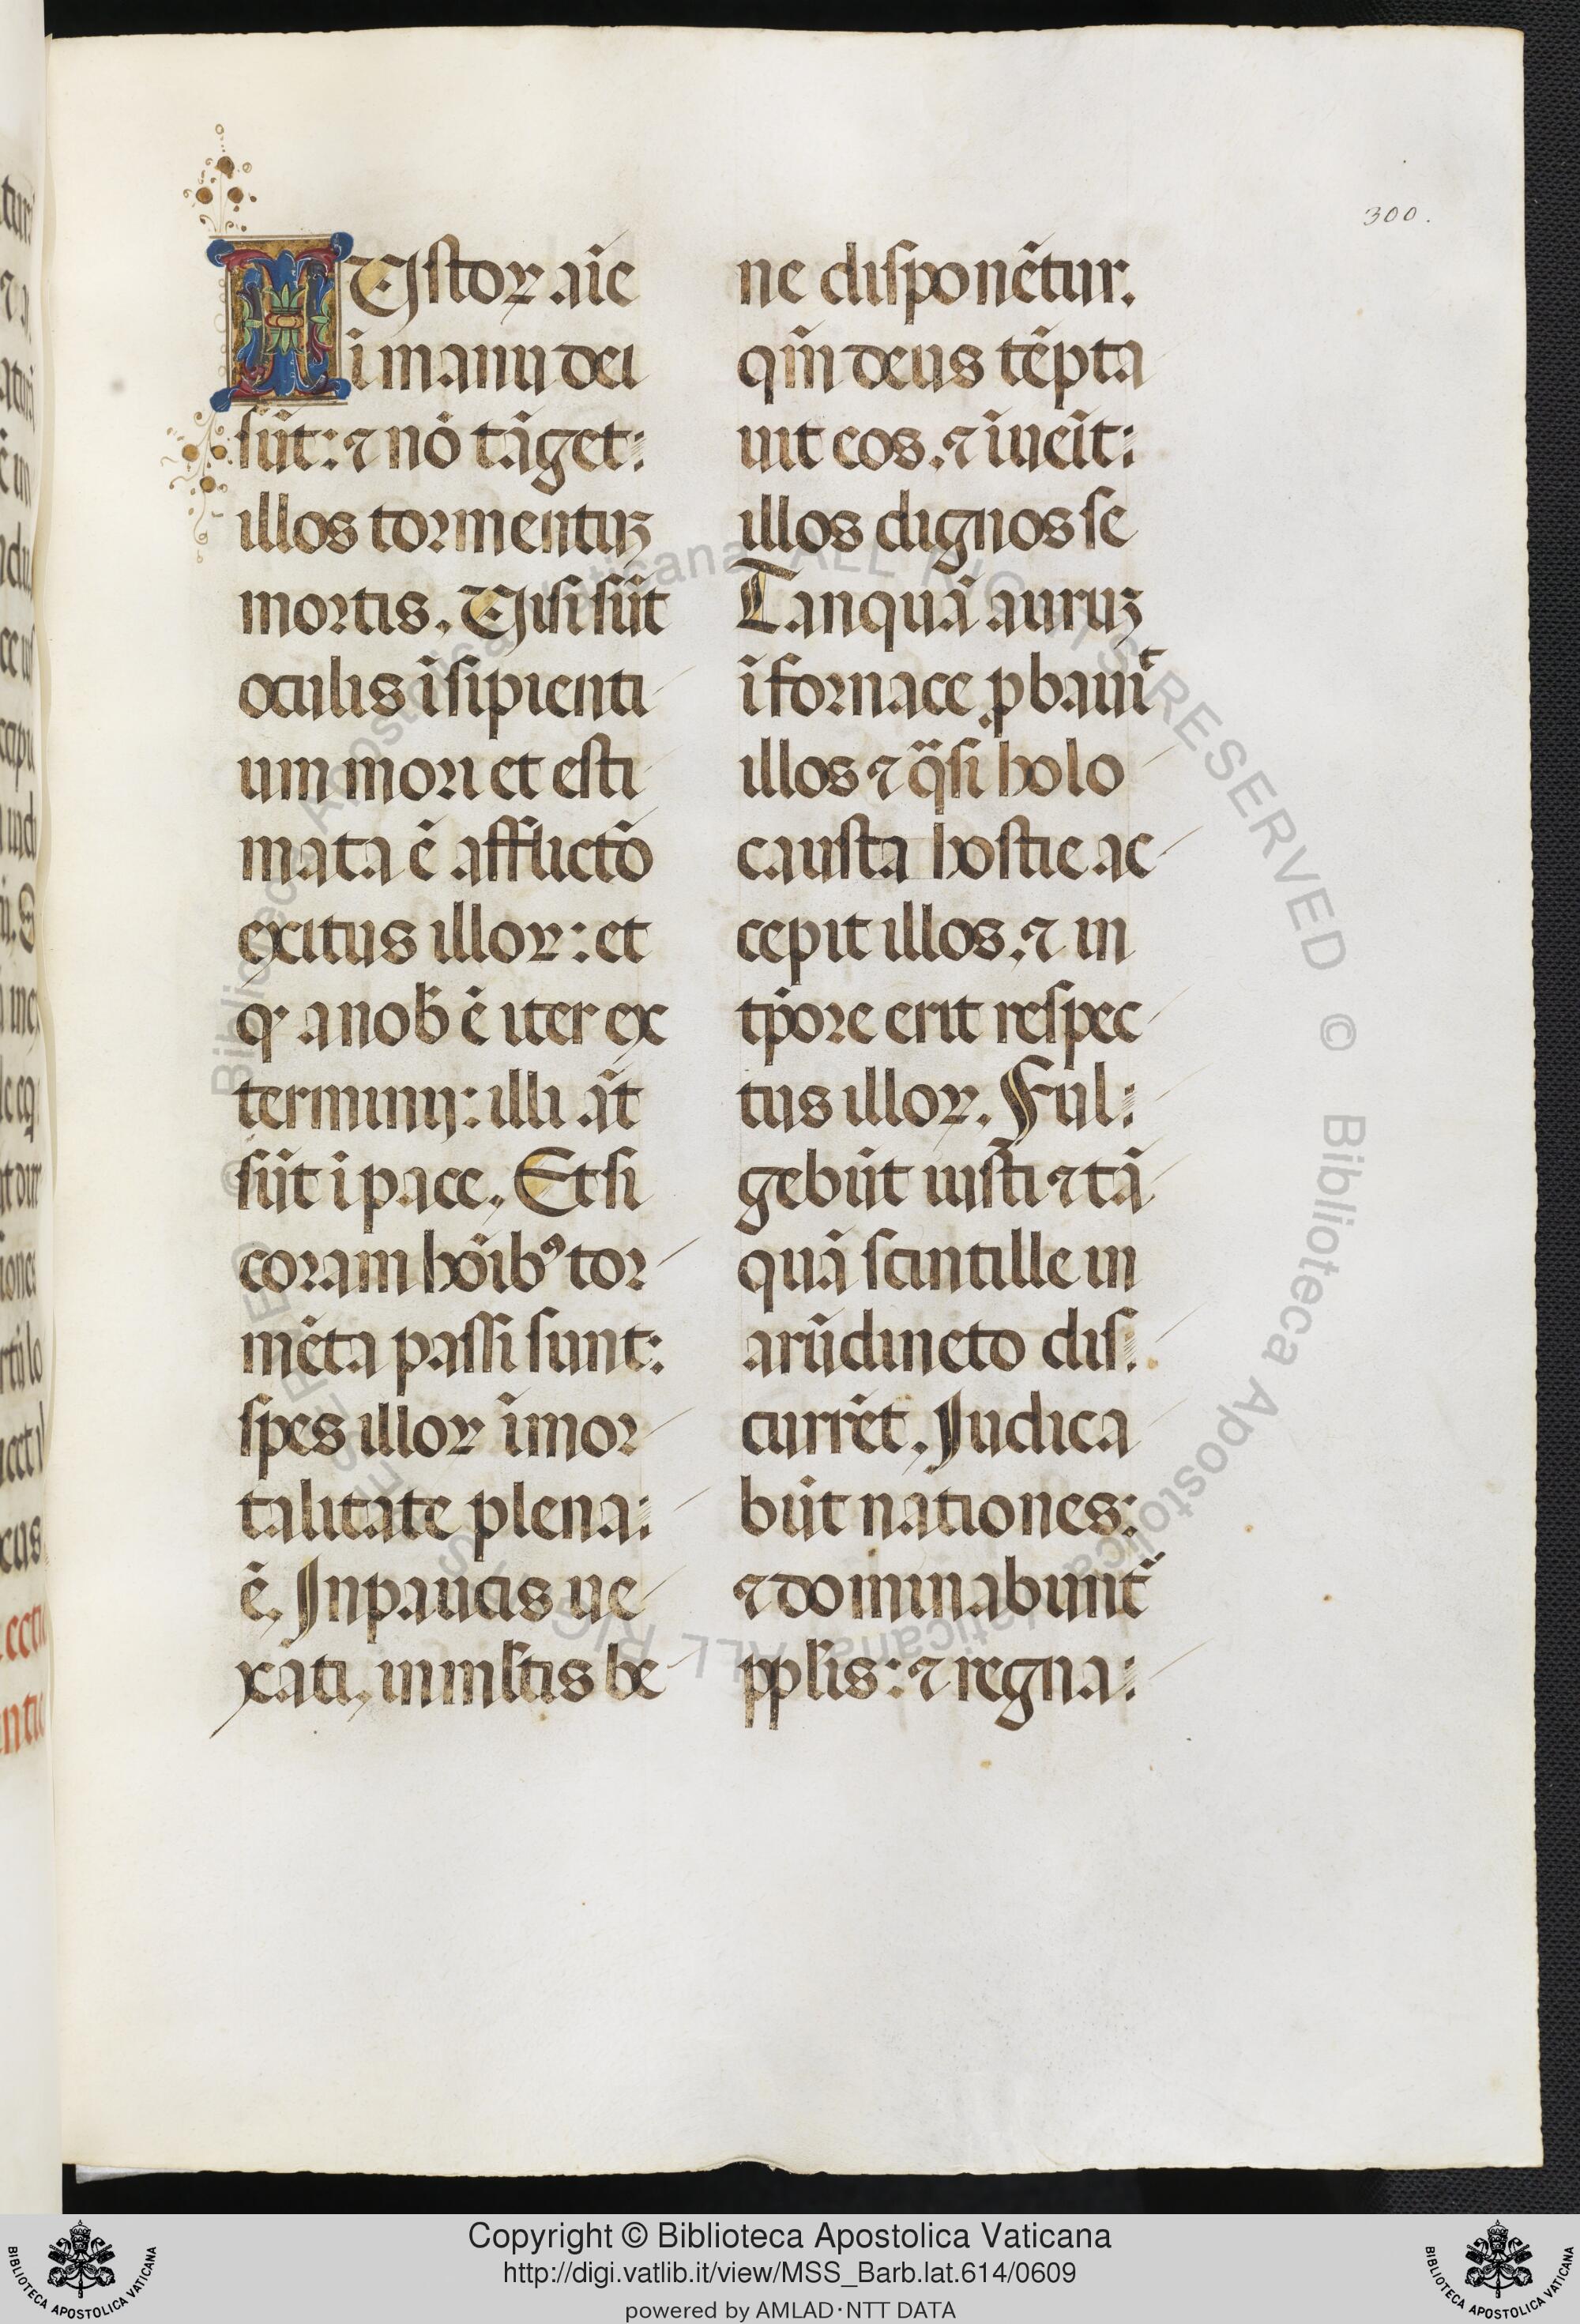 300.
IUstoꝝ aīe
i manu dei
sūt: ⁊ nō tāget:
illos tormentuꝫ
mortis. Uisi sūt
oculis īsipienti
um mori et esti
mata ē afflictō
exitus illoꝝ: et
qꝛ a nob̄ ē iter ex
terminij: illi āt
sūt i pace. Et si
coram hōibꝰ tor
mēta passi sunt:
spes illoꝝ īmor
talitate plena:
ē. In paucis ue
xati, in mltis be
ne disponētur.
qm̄ deus tēpta
uit eos. ⁊ īueīt:
illos dignos se
Tanquā auruꝫ
ī fornace ꝓbauit
illos ⁊ q̄si holo
causta hostie ac
cepit illos. ⁊ in
tp̄ore erit respec
tus illoꝝ. Ful:
gebūt iusti ⁊ tā
quā scintille in
arūdineto dis:
currēt. Iudica
būt nationes:
⁊ dominabunt᷑
pplis: ⁊ regna:
Copyright © Biblioteca Apostolica Vaticana
http://digi.vatlib.it/view/MSS_Barb.lat.614/0609
powered by AMLAD·NTT DATA
BIBLIOTECA APOSTOLICA VATICANA
BIBLIOTECA APOSTOLICA VATICANA